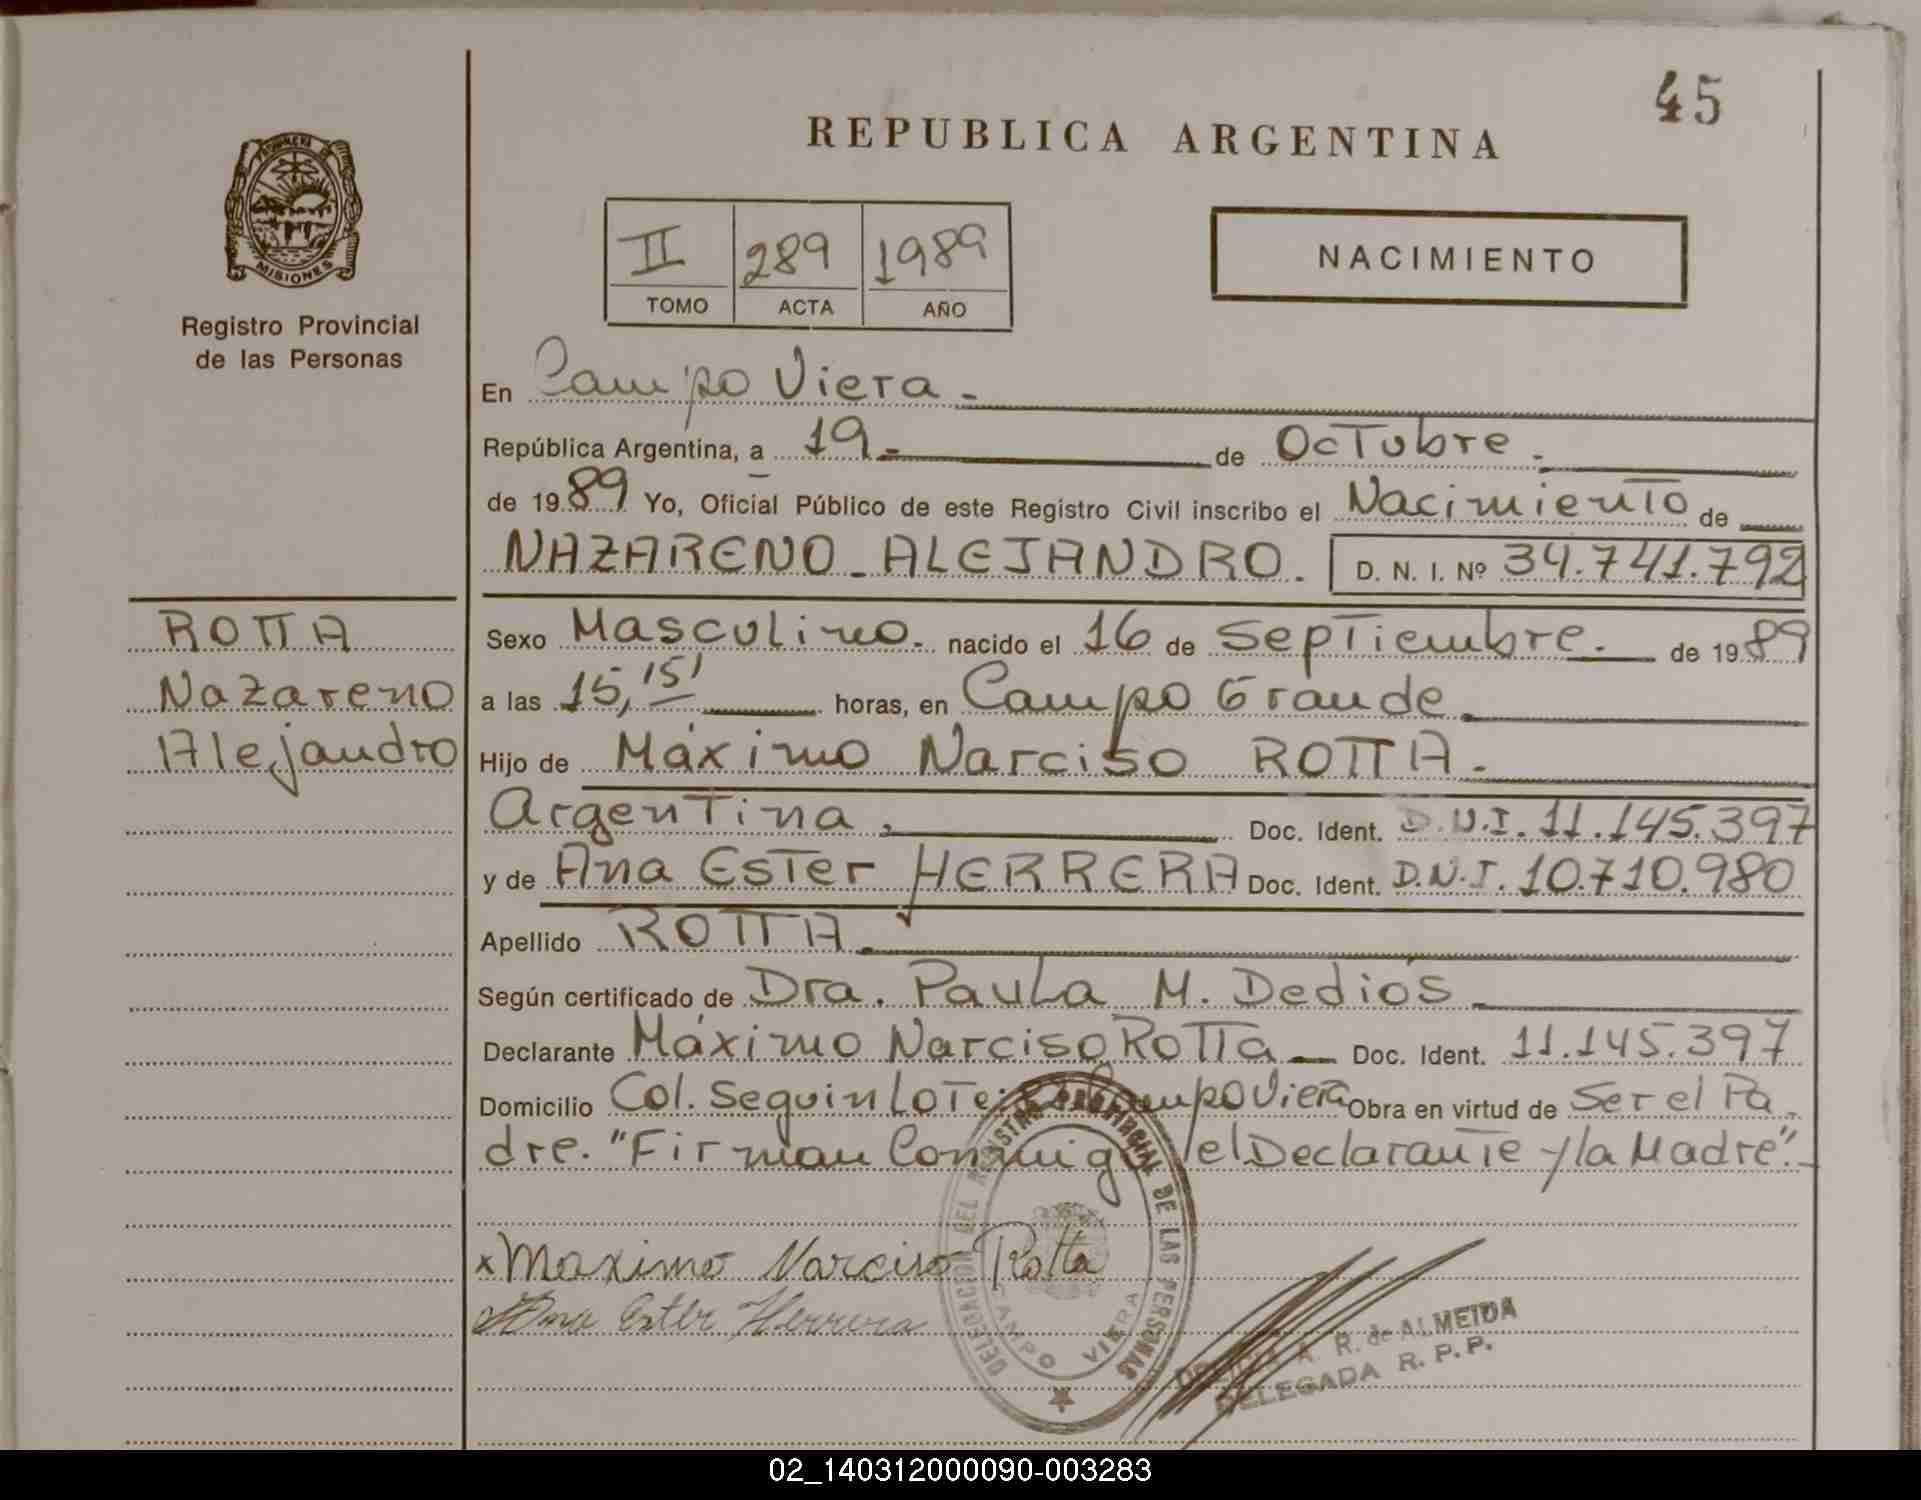 45
REPUBLICA ARGENTINA
PROVINCIA DE
MISIONES
Registro Provincial
de las Personas
II 289 1989
TOMO ACTA AÑO
NACIMIENTO
En Campo Viera.
República Argentina, a 19. de Octubre.
de 1989 Yo, Oficial Público de este Registro Civil inscribo el Nacimiento de
NAZARENO - ALEJANDRO. D. N. I. Nº 34.741.792
ROTTA
Nazareno
Alejandro
Sexo Masculino. nacido el 16 de Septiembre. de 1989
a las 15,15' horas, en Campo Grande
Hijo de Máximo Narciso ROTTA.
Argentina, Doc. Ident. D.N.I. 11.145.397
y de Ana Ester HERRERA Doc. Ident. D.N.I. 10.710.980
Apellido ROTTA.
Según certificado de Dra. Paula M. Dedios
Declarante Máximo Narciso Rotta Doc. Ident. 11.145.397
Domicilio Col. Seguin Lote Campo Viera Obra en virtud de Ser el Pa-
dre. "Firman Conmigo el Declarante y la Madre".
x Maximo Narciso Rotta
Ana Ester Herrera
DELEGACION DEL REGISTRO PROVINCIAL DE LAS PERSONAS
CAMPO VIERA
A. R. de ALMEIDA
DELEGADA R. P. P.
02_140312000090-003283